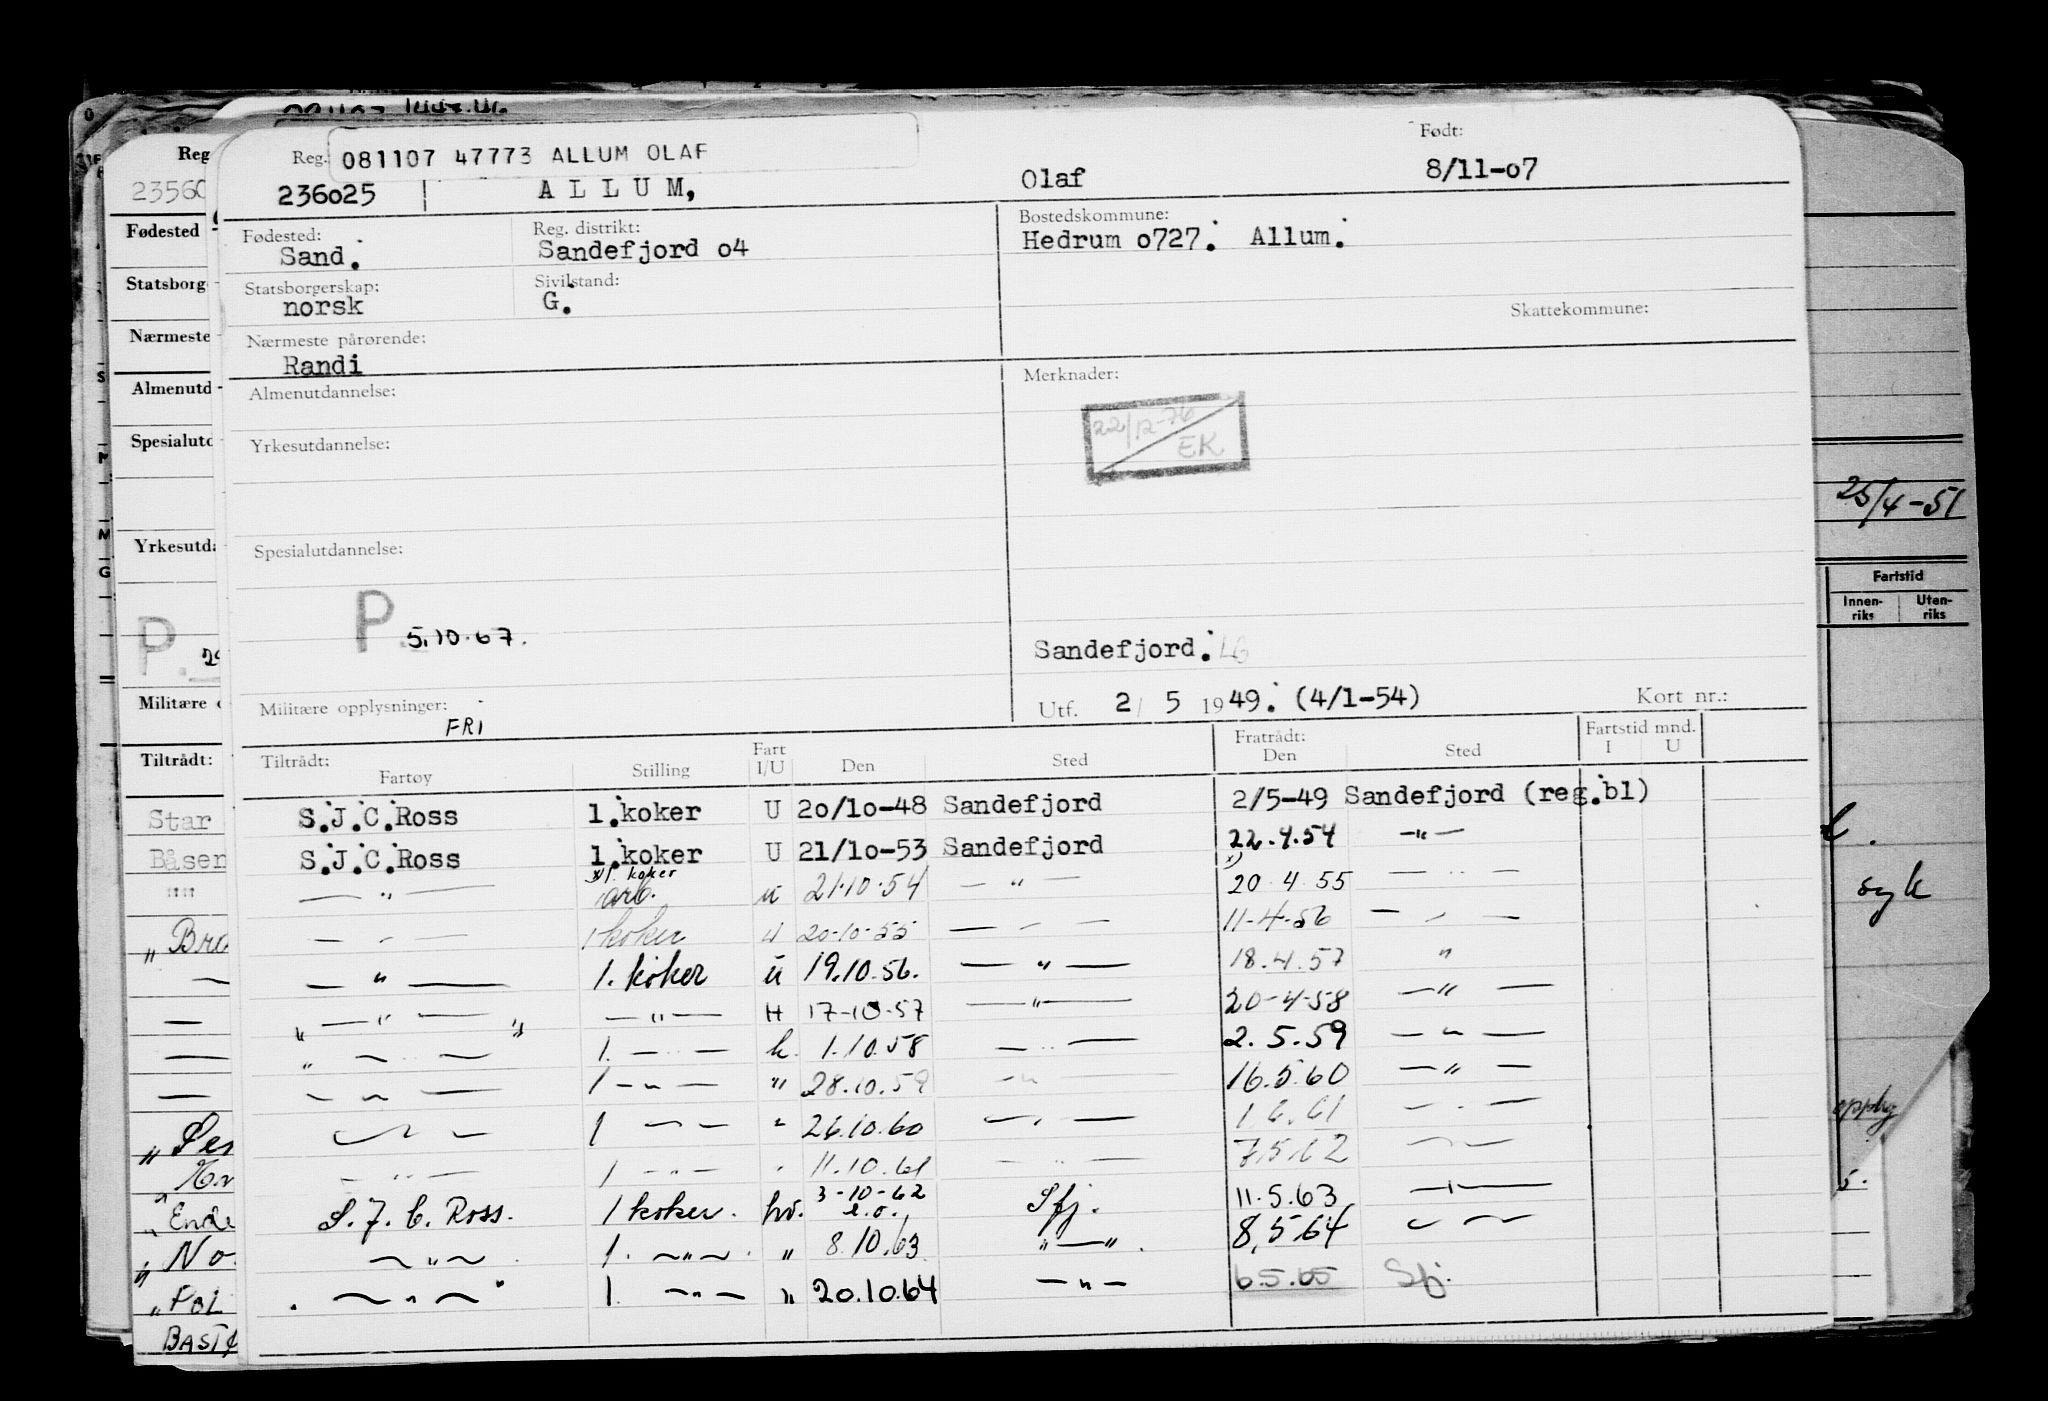 Reg. 081107 47773 ALLUM OLAF
Født:
236025 ALLUM, Olaf 8/11-07
Fødested: Reg. distrikt: Bostedskommune:
Sand. Sandefjord 04 Hedrum 0727. Allum.
Statsborgerskap: Sivilstand:
norsk G.
Skattekommune:
Nærmeste pårørende:
Randi
Almenutdannelse: Merknader:
22/12-76
EK
Yrkesutdannelse:
Spesialutdannelse:
P. 5.10.67.
Sandefjord. LG
Militære opplysninger: Utf. 2/5 1949. (4/1-54) Kort nr.:
FRI
Tiltrådt: Fart Fratrådt: Fartstid mnd.
Fartøy Stilling I/U Den Sted Den Sted I U
S.J.C.Ross 1.koker U 20/10-48 Sandefjord 2/5-49 Sandefjord (reg.bl)
S.J.C.Ross 1.koker U 21/10-53 Sandefjord 22.4.54 —"—
x) 1. koker x)
— " — arb. u 21.10.54 — " — 20.4.55 — " —
— " — 1 koker u 20-10-55 — " — 11-4-56 — " —
— " — 1. koker u 19.10.56. — " — 18.4.57 "
" — " — " — " — H 17-10-57 — " — 20-4-58 — " —
" — " — 1. — " — h. 1.10.58 — " — 2.5.59 — " —
— " — 1 — " — " 28.10.59 — " — 16.5.60 — " —
— " — 1 — " — " 26.10.60 — " — 1.6.61 — " —
— " — 1 — " — " 11.10.61 — " — 7.5.62 — " —
S.J.C. Ross. 1 koker. hv. 3-10-62 e.o. Sfj. 11.5.63 — " —
— " — 1. — " — " 8.10.63 " — " 8.5.64 — " —
— " — 1. — " — " 20.10.64 — " — 6.5.65 Sfj.
Reg
23560
Fødested
Statsborg
Nærmeste
Almenutd
Spesialutd
Yrkesutda
P.
Militære
Tiltrådt:
Star
Båsen
" Bra
" Ende
" No
" Pol
BASTØ
25/4-51
Fartstid
Innen-riks Uten-riks
syk